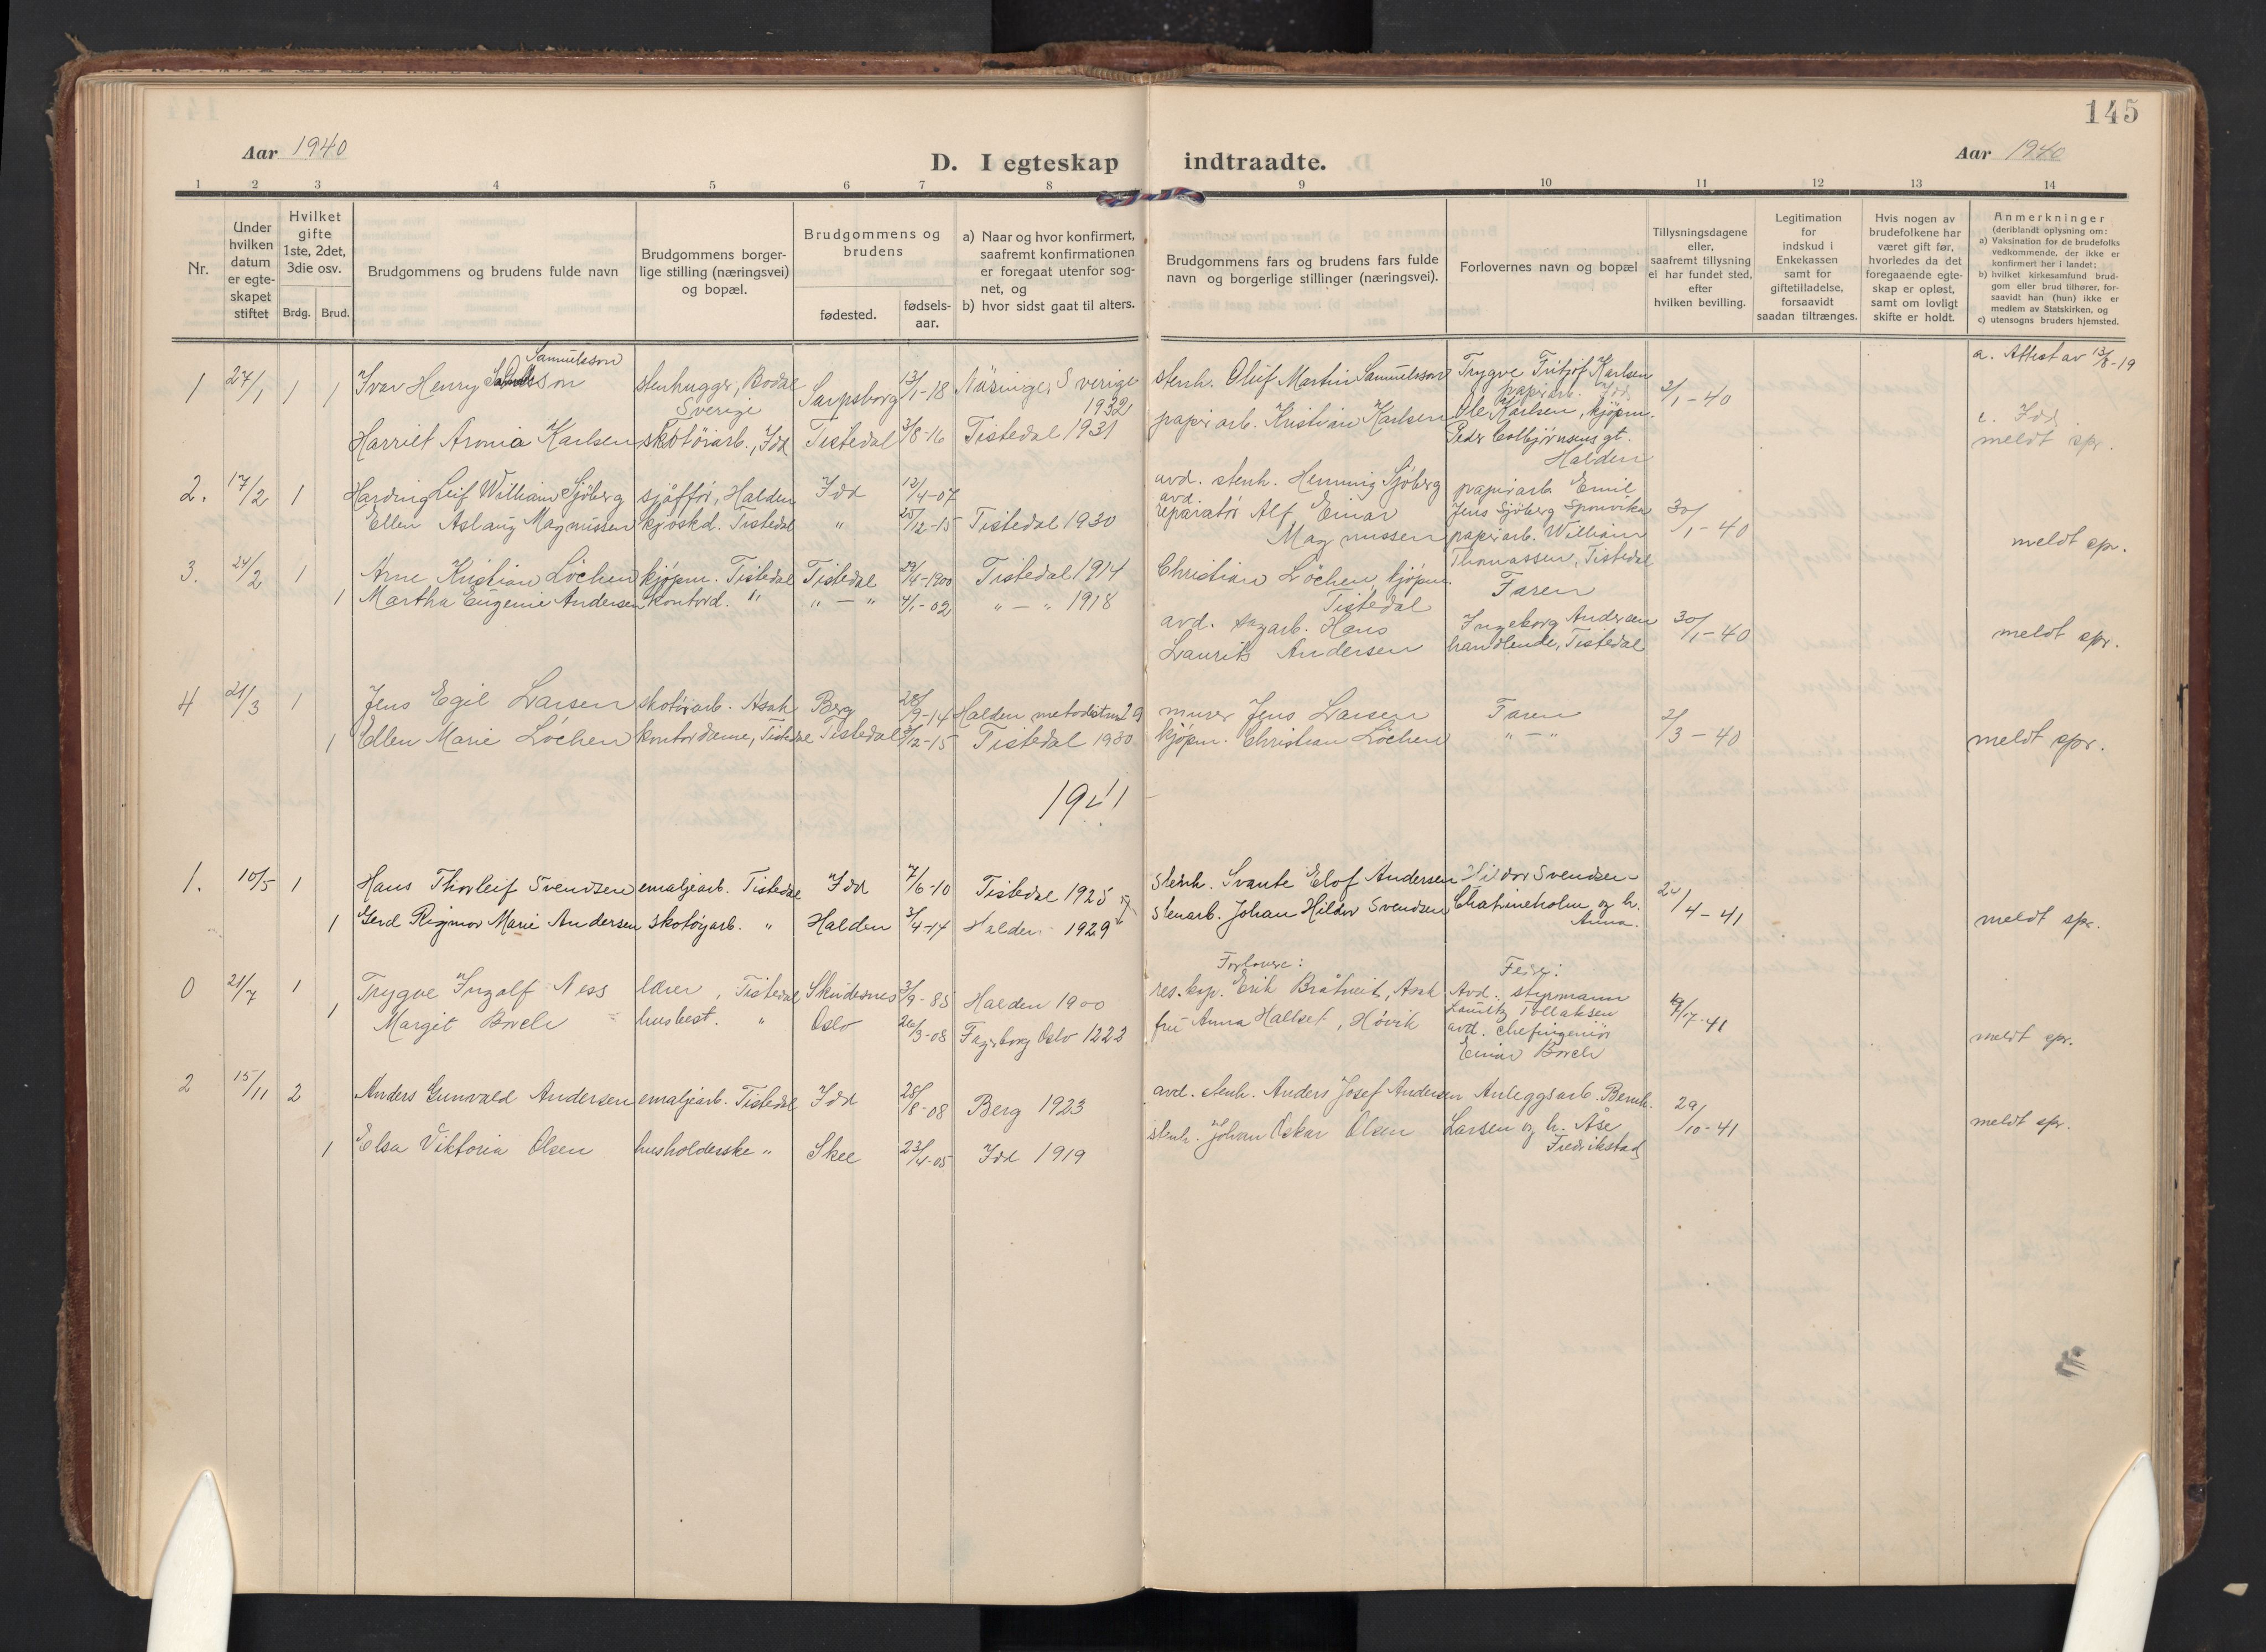 145
Aar 1940
D. I egteskap indtraadte.
Aar 1940
1 2 3 4 5 6 7 8 9 10 11 12 13 14
Nr.
Under hvilken datum er egteskapet stiftet
Hvilket gifte 1ste, 2det, 3die osv.
Brdg. Brud.
Brudgommens og brudens fulde navn
Brudgommens borgerlige stilling (næringsvei) og bopæl.
Brudgommens og brudens
fødested. fødselsaar.
a) Naar og hvor konfirmert, saafremt konfirmationen er foregaat utenfor sognet, og
b) hvor sidst gaat til alters.
Brudgommens fars og brudens fars fulde navn og borgerlige stillinger (næringsvei).
Forlovernes navn og bopæl
Tillysningsdagene eller, saafremt tillysning ei har fundet sted, efter hvilken bevilling.
Legitimation for indskud i Enkekassen samt for giftetilladelse, forsaavidt saadan tiltrænges.
Hvis nogen av brudefolkene har været gift før, hvorledes da det foregaaende egteskap er opløst, samt om lovligt skifte er holdt.
Anmerkninger (deriblandt oplysning om:
a) Vaksination for de brudefolks vedkommende, der ikke er konfirmert her i landet;
b) hvilket kirkesamfund brudgom eller brud tilhører, forsaavidt han (hun) ikke er medlem av Statskirken, og
c) utensogns bruders hjemsted.
Samuelsson
1 27/1 1 1 Ivar Henry stenhugger, Bodal Sverige Sarpsborg 13/1-18 Näsinge, Sverige 1932 stenh. Oluf Martin Samuelsson Trygve Fritjof Karlsen papirarb. Idd 2/1-40 a. Attest av 13/8-19
Harriet Aronia Karlsen skotöiarb., Idd Tistedal 3/8-16 Tistedal 1931 papirarb. Kristian Karlsen Ole Karlsen, kjøpm. Peder Colbjørnsens gt. Halden c. Idd meldt spr.
2. 17/2 1 Harding Leif William Sjöberg sjåffør, Halden Idd 12/4-07 avd. stenh. Henning Sjöberg papirarb. Emil Jens Sjöberg Sponvika 30/1-40
Ellen Aslaug Magnussen kjoskd. Tistedal " 25/12-15 Tistedal 1930 avd. reparatör Alf Einar Magnussen papirarb. William Thomassen, Tistedal meldt spr.
3. 24/2 1 Arne Kristian Löchen kjøpm. Tistedal Tistedal 29/4-1900 Tistedal 1914 Christian Löchen kjøpm. Tistedal Faren
1 Martha Eugenie Andersen kontord. " " — " 4/1-02 " — " 1918 avd. sagarb. Hans Laurits Andersen Ingeborg Andersen handlende, Tistedal 30/1-40 meldt spr.
4 21/3 1 Jens Egil Larsen skotöiarb. Asak Berg 28/9-14 Halden metodistm 29 murer Jens Larsen Faren 2/3-40
1 Ellen Marie Löchen kontordame, Tistedal Tistedal /12-15 Tistedal 1930 kjöpm. Christian Löchen " — " meldt spr.
1941
1. 10/5 1 Hans Thorleif Svendsen emaljearb. Tistedal Idd 7/6-10 Tistedal 1925 stenh. Svante Elof Andersen Hildor Svendsen
1 Gerd Rigmor Marie Andersen skotøyarb. " Halden 3/4-14 Halden 1929 stenarb. Johan Hildor Svendsen Chatrineholm og h. Anna. /4-41 meldt spr.
Forlovere: Fedre:
0 21/7 1 Trygve Ingolf Ness lærer, Tistedal Skudesnes 3/9-85 Halden 1900 res. kap. Erik Bråtveit, Asak Avd. styrmann Lauritz Tollaksen /7-41
1 Margit Borch husbest. " Oslo 26/3-08 Fagerborg Oslo 1223 fru Anna Hallset, Høvik avd. chefingeniør Einar Borch meldt spr.
2 15/11 2 Anders Gunvald Andersen emaljearb. Tistedal Idd 28/8-08 Berg 1923 avd. stenh. Anders Josef Andersen Anleggsarb. Bernh. 29/10-41
1 Elsa Viktoria Olsen husholderske " Skee 23/4-05 Idd 1919 stenh. Johan Oskar Olsen Larsen og h. Åse Fredrikstad meldt spr.